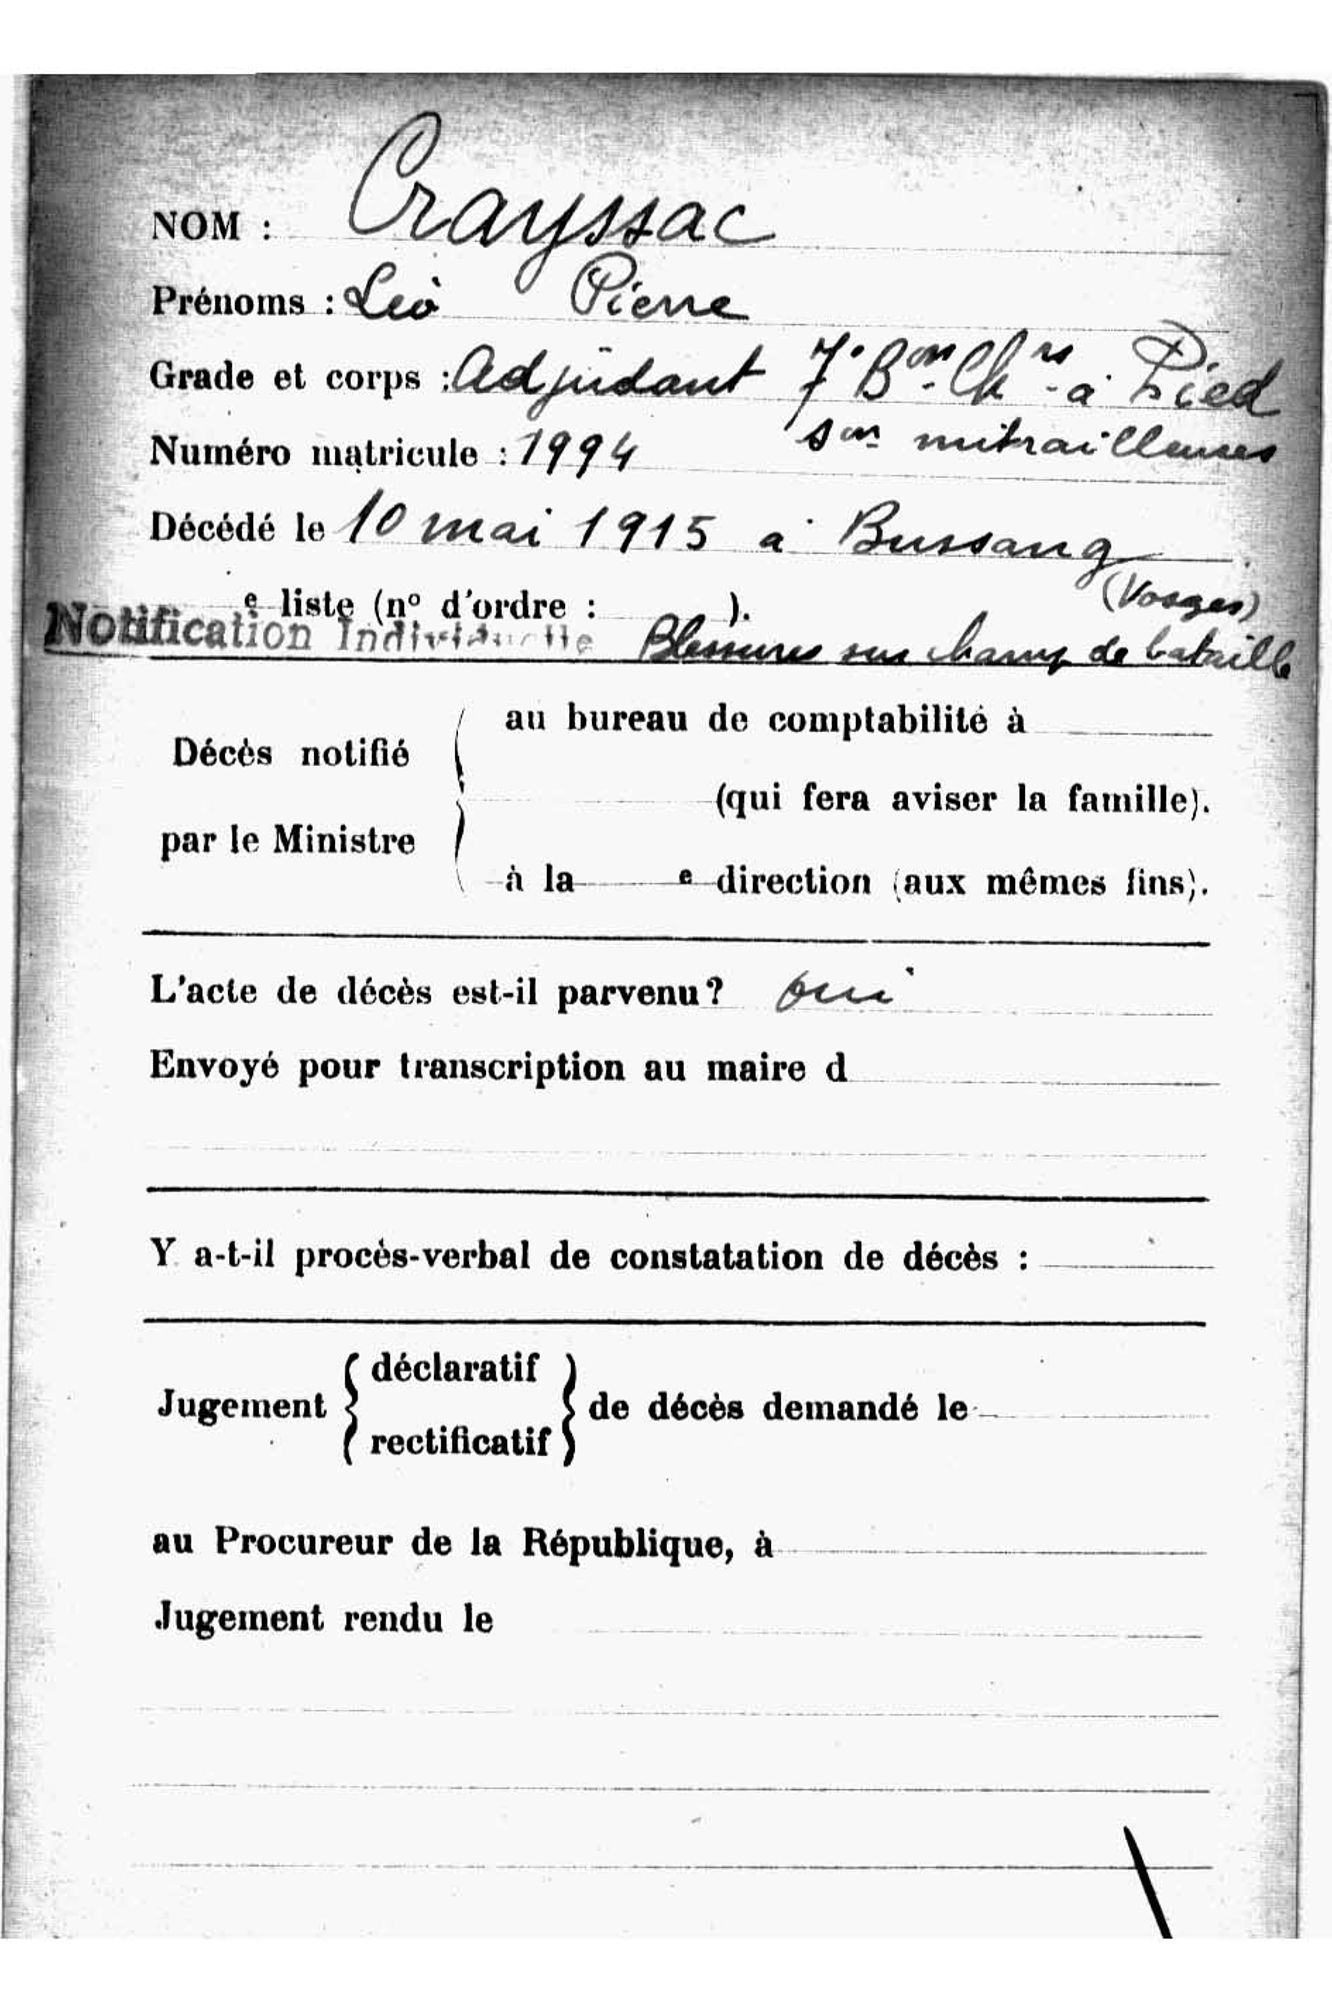 NOM : Crayssac
Prénoms : Léo Pierre
Grade et corps : Adjudant 7e Bon Chrs à Pied
Numéro matricule : 1994 son mitrailleuses
Décédé le 10 mai 1915 à Bussang
(Vosges)
e liste (n° d'ordre : ).
Notification Individuelle Blessures sur champ de bataille
au bureau de comptabilité à
Décès notifié
(qui fera aviser la famille).
par le Ministre
à la e direction (aux mêmes fins).
L'acte de décès est-il parvenu? oui
Envoyé pour transcription au maire d
Y a-t-il procès-verbal de constatation de décès :
déclaratif
Jugement de décès demandé le
rectificatif
au Procureur de la République, à
Jugement rendu le